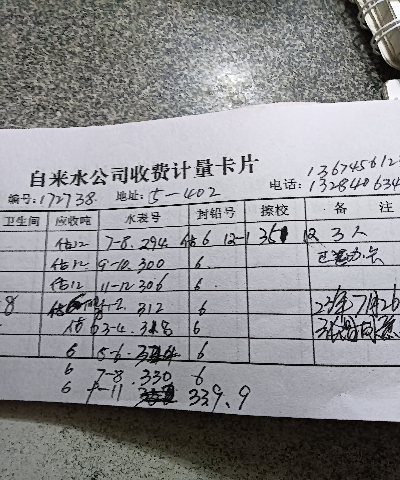 自来水公司收费计量卡片
1367456123
编号:172738 地址:5-402 电话:132840634
卫生间 应收吨 水表号 封铅号 擦校 备 注
估12 7-8. 294 估6 12-1 351 12 3人
估12 9-10. 300 6.
估12 11-12 306 6
8 1-2. 312 6 23年7月26
估6 3-4. 318 6
6 5-6. 324 6
6 7-8 330 6
6 9-11 339.9